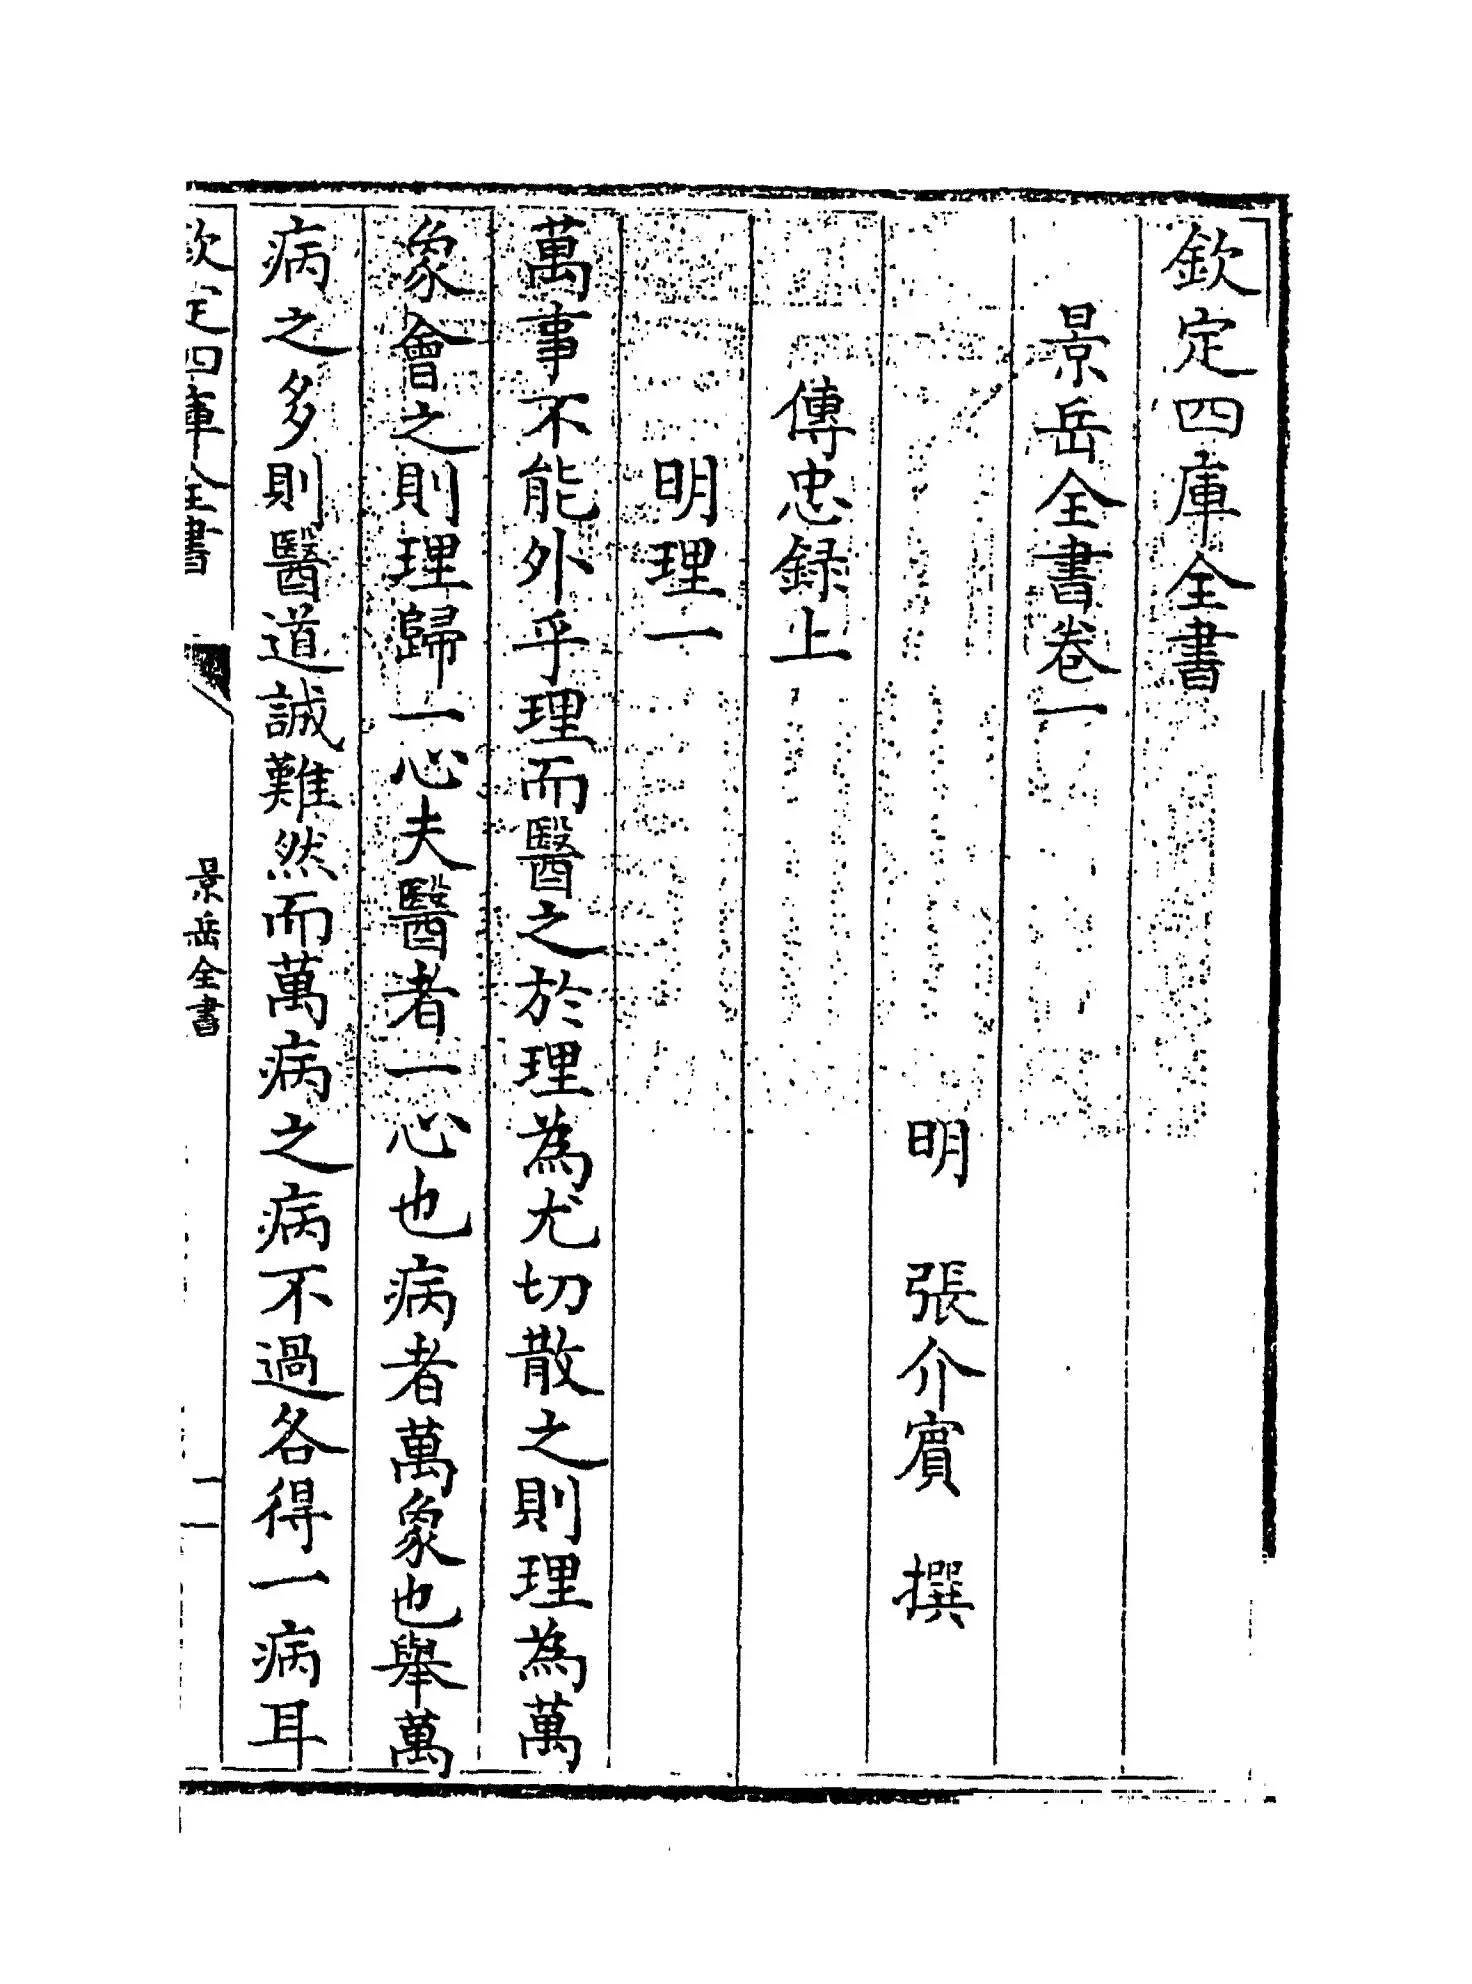 欽定四庫全書
景岳全書卷一
明 張介賓 撰
傳忠録上
明理一
萬事不能外乎理而醫之於理為尤切散之則理為萬
象會之則理歸一心夫醫者一心也病者萬象也舉萬
病之多則醫道誠難然而萬病之病不過各得一病耳
欽定四庫全書 景岳全書